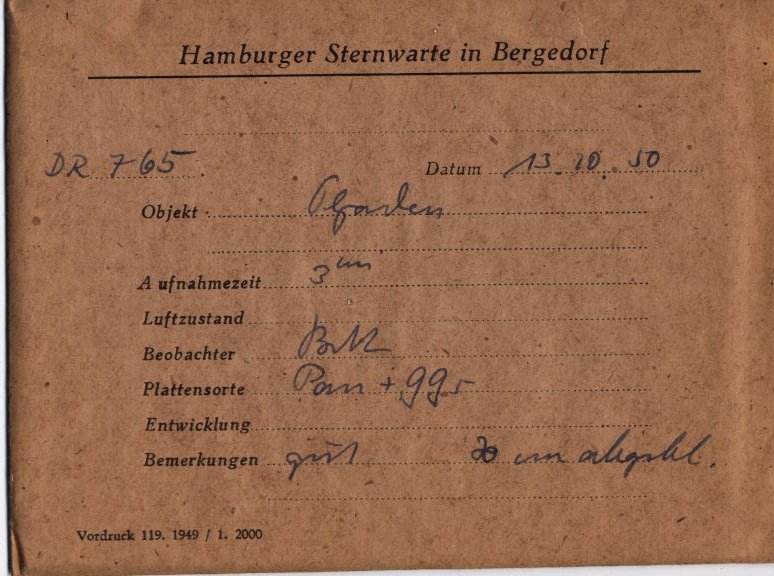 Hamburger Sternwarte in Bergedorf
DR 765 Datum 13.10.50
Objekt
Aufnahmezeit 3 m
Luftzustand
Beobachter
Plattensorte Pan +
Entwicklung
Bemerkungen gut
Vordruck 119. 1949 / 1. 2000